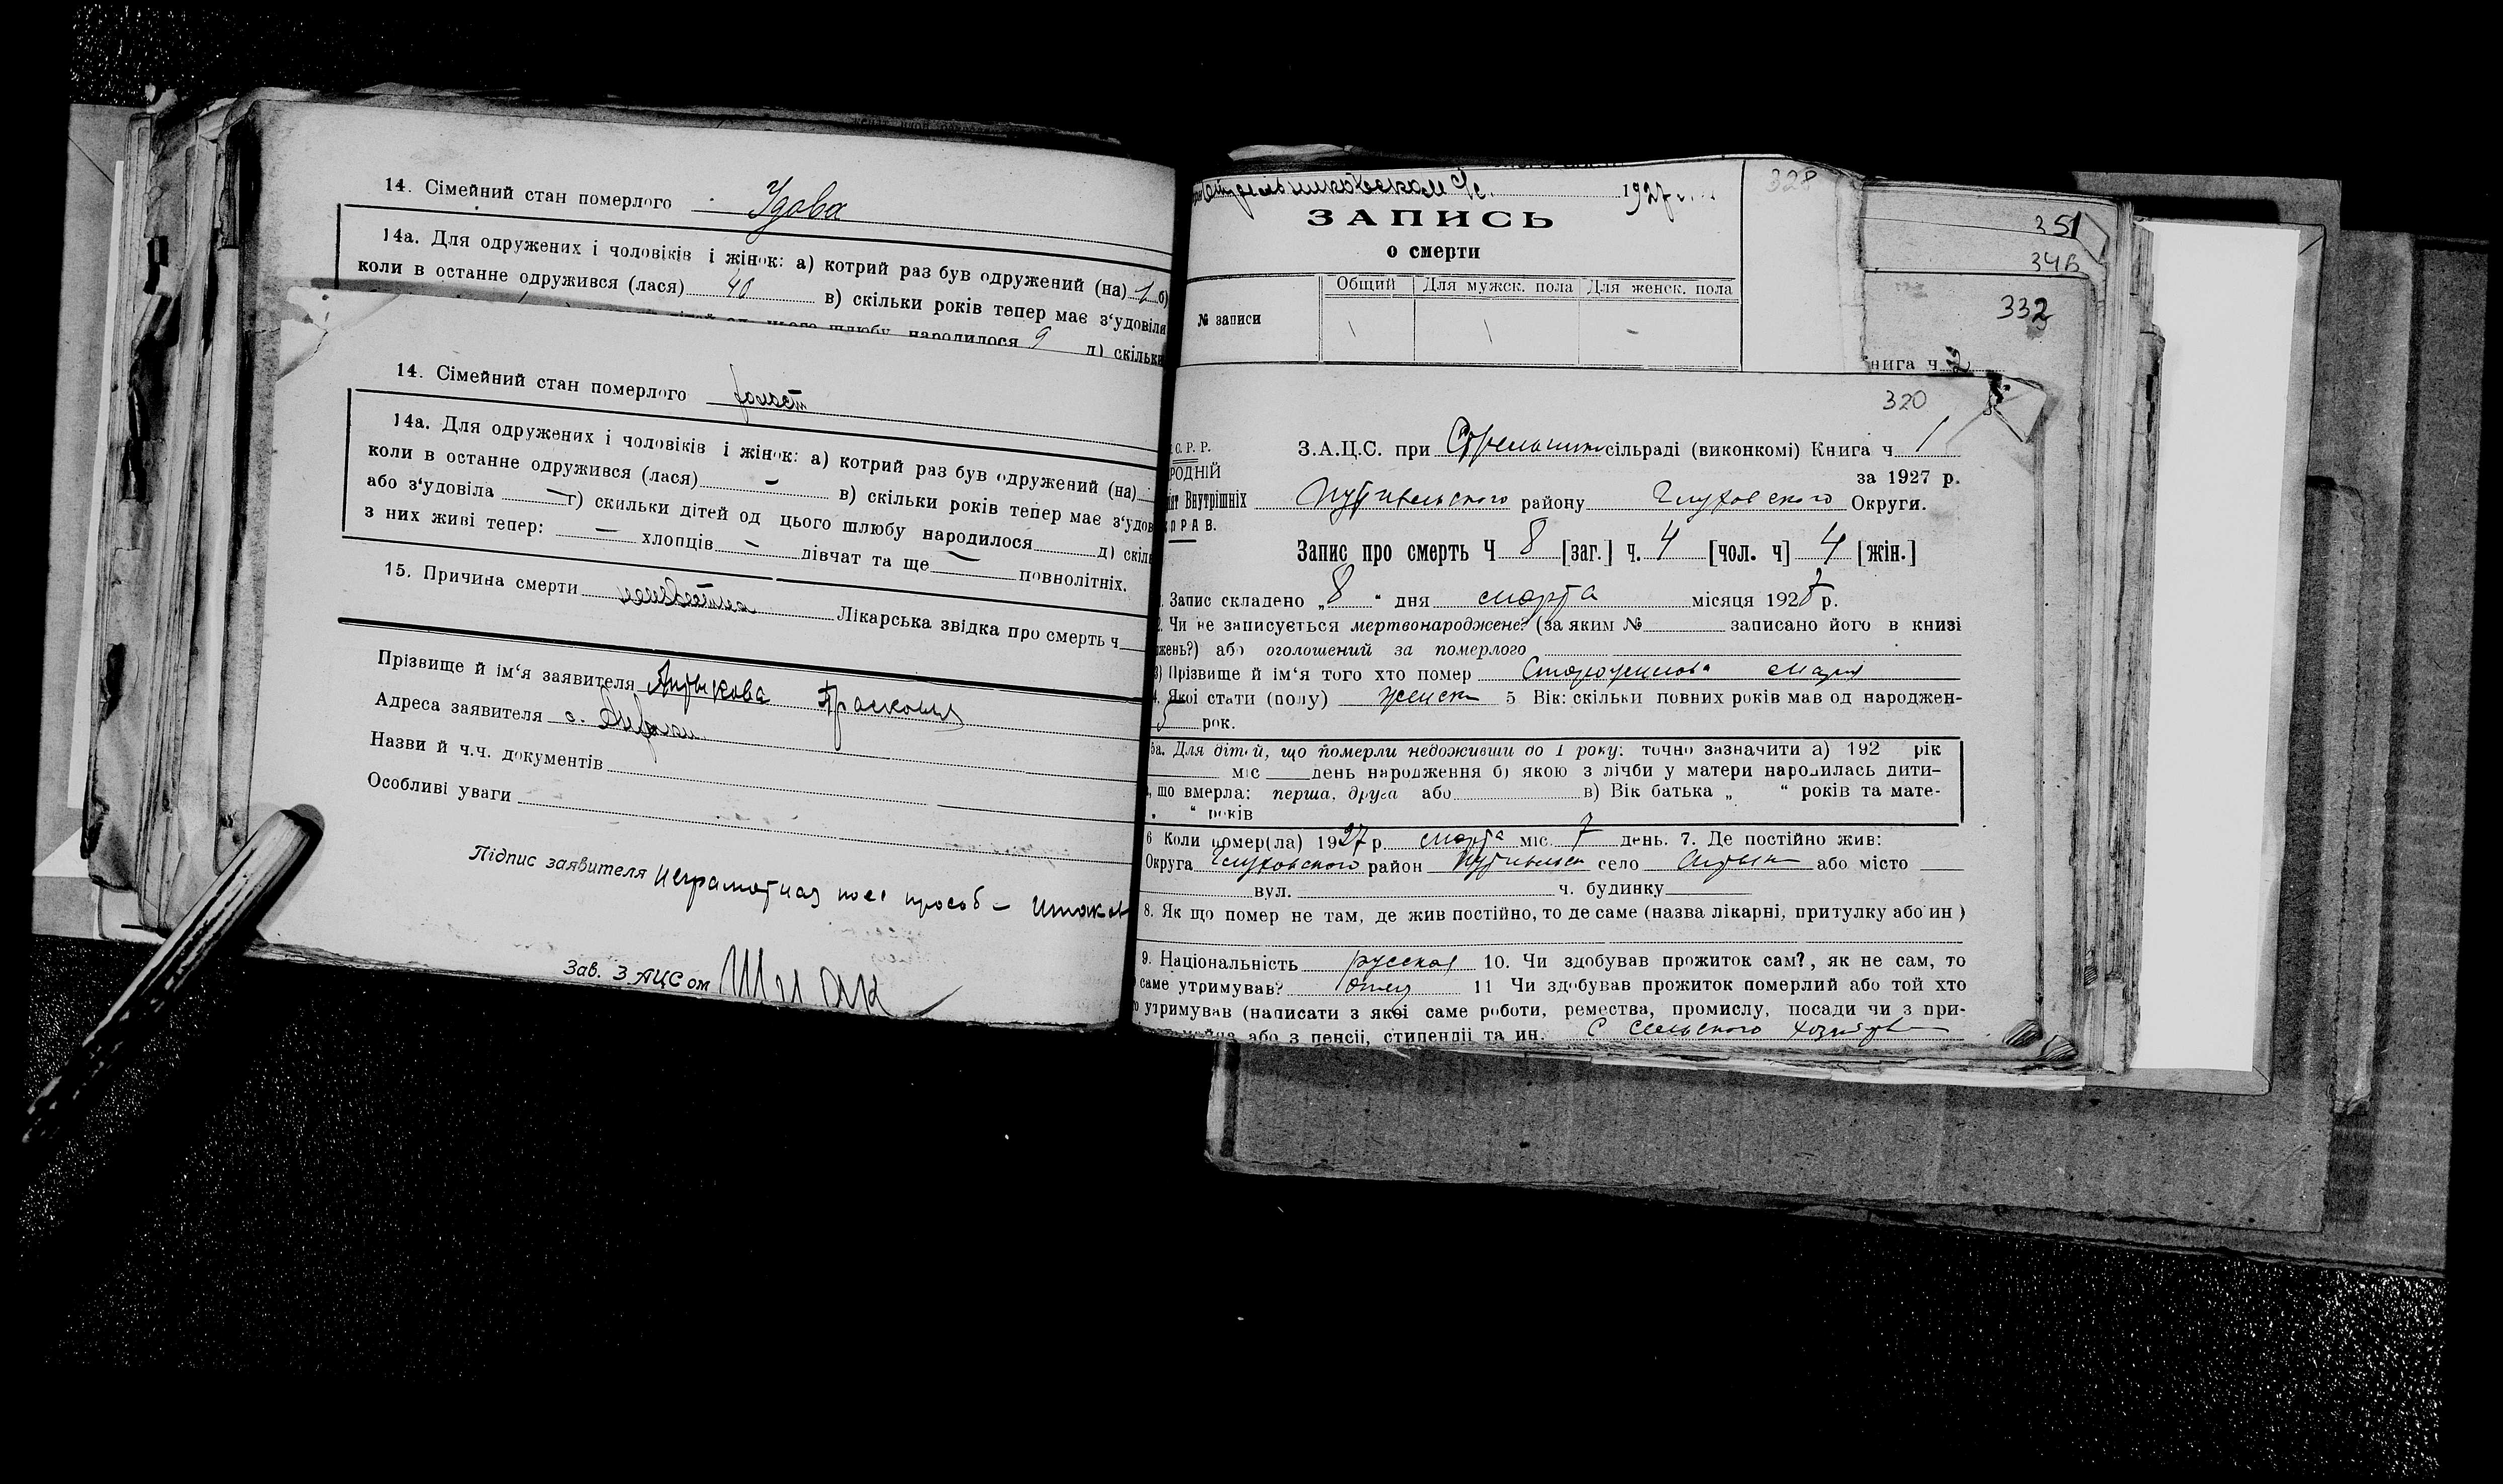 14. Сімейний стан померлого Удова
14а. Для одружених і чоловіків і жінок: а) котрий раз був одружений (на) 1 б)
коли в останне одружився (лася) 40 в) скільки років тепер має з'удовіли
шлюбу народилося 9 д) скільки
14. Сімейний стан померлого холост
14а. Для одружених і чоловіків і жінок: а) котрий раз був одружений (на)
коли в останне одружився (лася) — в) скільки років тепер має з'удов
або з'удовіла — г) скильки дітей од цього шлюбу народилося — д) скіл
з них живі тепер: — хлопців — дівчат та ще — повнолітніх.
15. Причина смерти неизвестна Лікарська звідка про смерть ч.
Прізвище й ім'я заявителя Прасковия
Адреса заявителя с.
Назви й ч.ч. документів
Особливі уваги
Підпис заявителя Неграмотная
Зав. ЗАЦСом
Стрельниковском с/с. 1927 г.
ЗАПИСЬ
о смерти
Общий Для мужск. пола Для женск. пола
№ записи
328
351
346
332
нига ч. 2
320
.С.Р.Р.
РОДНІЙ
Внутрішніх
ПРАВ.
З.А.Ц.С. при сільраді (виконкомі) Книга ч 1
за 1927 р.
Путивельского району Глуховского Округи.
Запис про смерть Ч 8 [заг.] ч. 4 [чол. ч] 4 [жін.]
Запис складено „8" дня марта місяця 1927 р.
2. Чи не записується мертвонароджене? (за яким № записано його в книзі
жень?) або оголошений за померлого
3) Прізвище й ім'я того хто помер Мария
4. Якої стати (полу) женск 5 Вік: скільки повних років мав од народжен-
5 рок.
5а. Для дітей, що померли недоживши до 1 року: точно зазначити а) 192 рік
міс день народження б) якою з лічби у матери народилась дити-
, що вмерла: перша, друга або в) Вік батька „ " років та мате-
" років
6 Коли помер(ла) 1927 р. марта міс. 7 день. 7. Де постійно жив:
Округа Глуховского район Путивльск село або місто
вул. ч. будинку
8. Як що помер не там, де жив постійно, то де саме (назва лікарні, притулку або ин )
9. Національність русская 10. Чи здобував прожиток сам?, як не сам, то
саме утримував? отец 11 Чи здобував прожиток померлий або той хто
утримував (написати з якої саме роботи, ремества, промислу, посади чи з при-
майна або з пенсії, стипендії та ин. С сельского